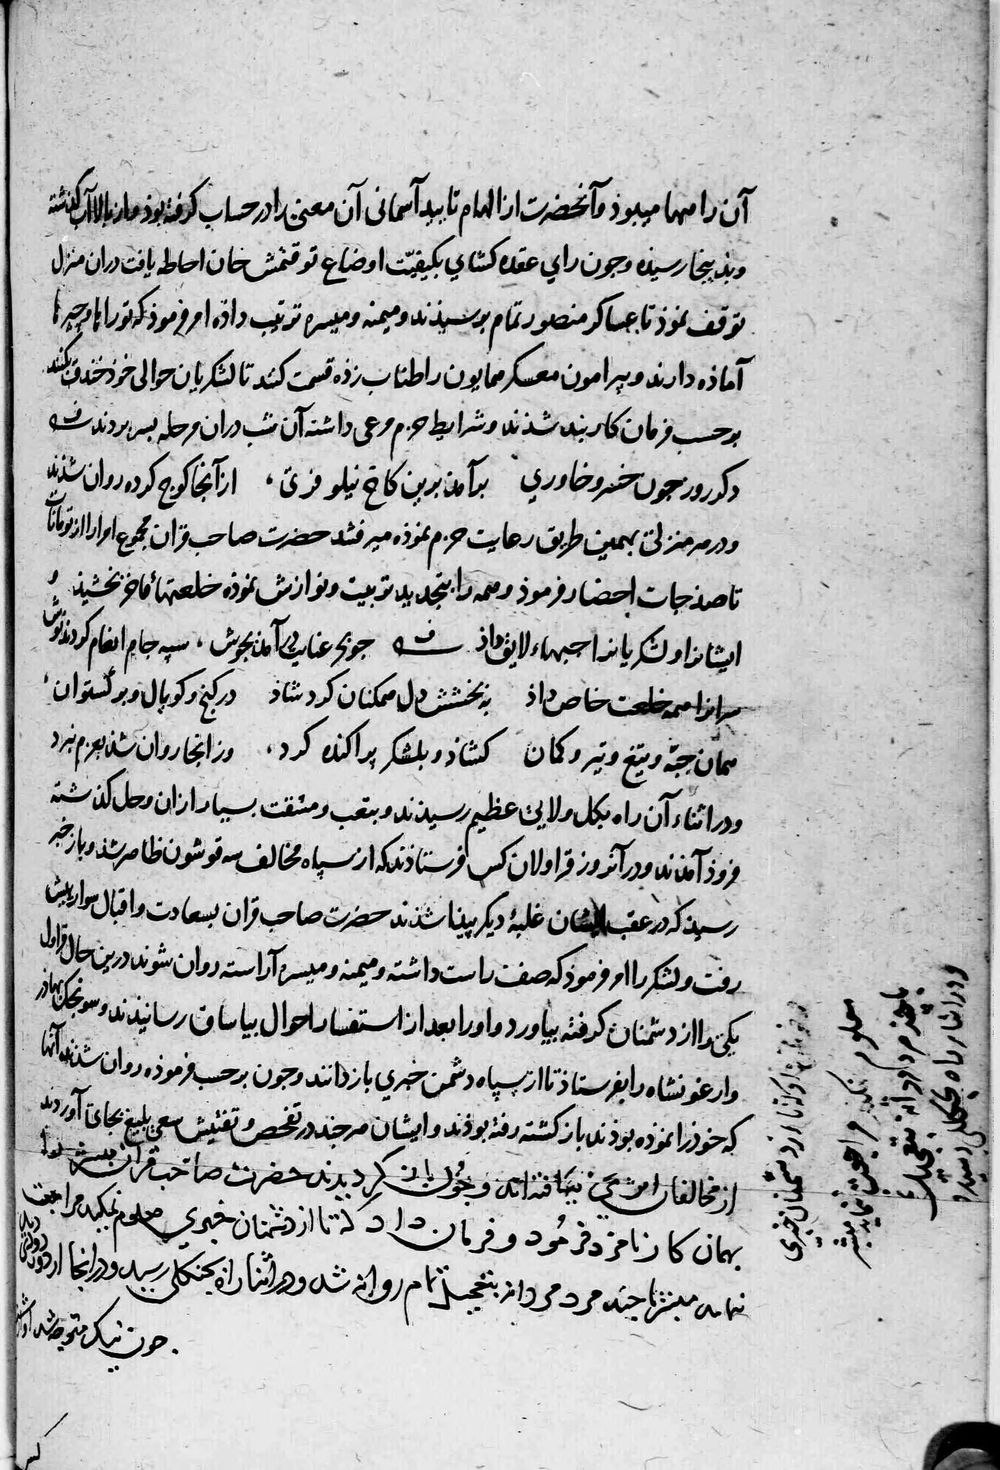 آن را مهیا میبوذ و آنحضرت از الهام تایید آسمانی آن معنی را در حساب گرفته بوذ و از بالا آب گذشته
و بذیجا رسیذه و چون رای عقده کشای بکیفیت اوضاع توقتمش خان احاطه یافت دران منزل
توقف نموذ تا عساکر منصور تمام برسیذند و میمنه و میسره ترتیب داذه امر فرموذ که تورا و چپرها
آماذه دارند و پیرامون معسکر همایون را طناب زذه قسمت کنند تا لشکریان حوالی خوذ خندق کنند
بر حسب فرمان کار بند شذند و شرایط حزم مرعی داشته آن شب دران مرحله بسر بردند
دکر روز چون خسرو خاوری برآمد برین کاخ نیلوفری، از آنجا کوچ کرده روان شذند
و در هر منزلی بهمین طریق رعایت حزم نموذه میرفتند حضرت صاحب قران مجموع امرا را از تومانات
تا صذجات احضار فرموذ و همه را بتجدید تربیت و نوازش نموذه خلعتهاء فاخر بخشیذ و
ایشانرا و لشکریانرا جبهاء لایق داذ چو بحر عنایت در آمد بجوش، سپه جام انعام کردند نوش
سرانرا همه خلعت خاص داذ به بخشش دل همکنان کرد شاذ در گنج و کوپال و برکستوان،
همان جبه و تیغ و تیر و کمان کشاذ و بلشکر پراکنده کرد، وز انجا روان شذ بعزم نبرد
و در اثناء آن راه بکل ولایی عظیم رسیذند و بتعب و مشقت بسیار ازان وحل گذشته
فروذ آمدند و در آنروز قراولان کس فرستاذند که از سپاه مخالف سه قوشون ظاهر شد و باز خبر
رسیذ که در عقب ایشان غلبهٔ دیگر پیذا شذند حضرت صاحب قران بسعادت و اقبال سوار پیش
رفت و لشکر را امر فرموذ که صف راست داشته و میمنه و میسره آراسته روان شوند درین حال قراول
یکی را از دشمنان گرفته بیاورد و اورا بعد از استفسار احوال بیاساق رسانیذند و سونجک بهادر
و ارغونشاه را بفرستاذ تا از سپاه دشمن خبری بازدانند و چون بر حسب فرموذه روان شذند آنها
که خوذ را نموذه بودند باز گشته رفته بوذند و ایشان هر چند در تفحص و تفتیش سعی بلیغ بجای آوردند
از مخالفان اثری نیافتند و چون باز گردیدند حضرت صاحب قران مبشر را
بهمان کار نامزد فرمود و فرمان داد که تا از دشمنان خبری معلوم نکند مراجعت
نماید مبشر با چند مرد مردانه بتعجیل تمام روانه شد و در اثنا راه بجنگلی رسید و در انجا
چون نیک متوجه شد
خبری
معلوم نکند مراجعت ننماید مبشر
با چند مرد مردانه بتعجیل
و در اثناء راه بجنگلی رسید و